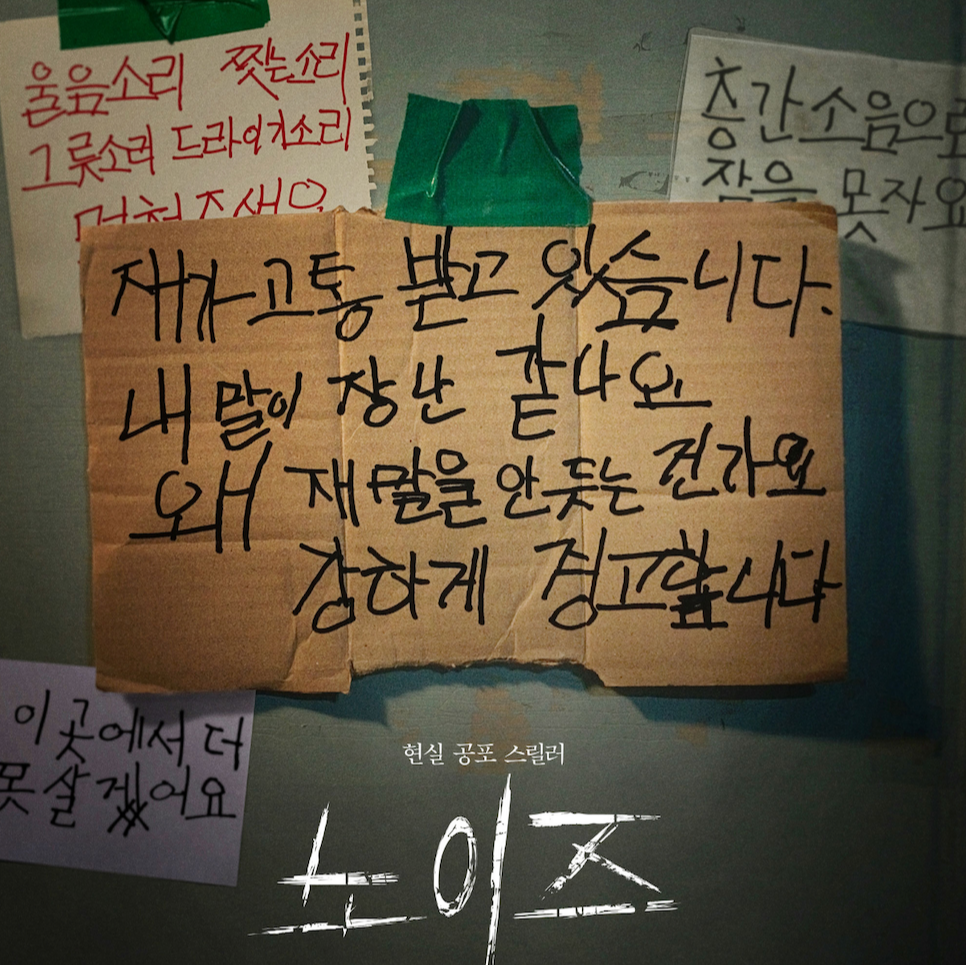 울음소리 찟는소리
그릇소리 드라이기소리
층간소음으로
잠을 못자요
재가 고통 받고 있습니다.
내 말이 장난 같나요
왜 재 말을 안듯는 건가요
강하게 경고합니다
이곳에서 더
못살겠어요
현실 공포 스릴러
노이즈